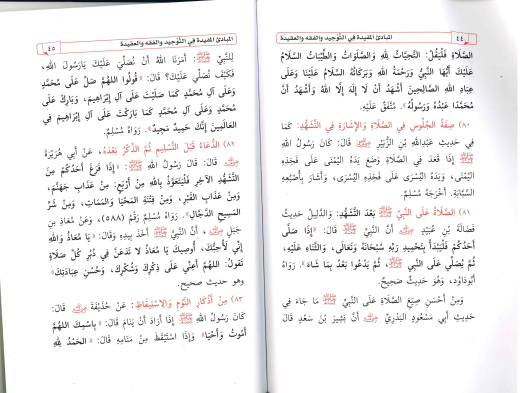 ٤٤ المبادئ المفيدة في التوحيد والفقه والعقيدة
الصَّلَاةِ فَلْيَقُلْ: التَّحِيَّاتُ لِلَّهِ وَالصَّلَوَاتُ وَالطَّيِّبَاتُ السَّلَامُ
عَلَيْكَ أَيُّهَا النَّبِيُّ وَرَحْمَةُ اللهِ وَبَرَكَاتُهُ السَّلَامُ عَلَيْنَا وَعَلَى
عِبَادِ اللهِ الصَّالِحِينَ أَشْهَدُ أَنْ لَا إِلَهَ إِلَّا اللهُ وَأَشْهَدُ أَنَّ
مُحَمَّدًا عَبْدُهُ وَرَسُولُهُ». مُتَّفَقٌ عَلَيْهِ.
٨٠) صِفَةُ الْجُلُوسِ فِي الصَّلَاةِ وَالْإِشَارَةِ فِي التَّشَهُّدِ: كَمَا
فِي حَدِيثِ عَبْدِاللهِ بْنِ الزُّبَيْرِ ﵄ قَالَ: كَانَ رَسُولُ اللهِ
ﷺ إِذَا قَعَدَ فِي الصَّلَاةِ وَضَعَ يَدَهُ الْيُمْنَى عَلَى فَخِذِهِ
الْيُمْنَى، وَيَدَهُ الْيُسْرَى عَلَى فَخِذِهِ الْيُسْرَى، وَأَشَارَ بِأُصْبُعِهِ
السَّبَّابَةِ. أَخْرَجَهُ مُسْلِمٌ.
٨١) الصَّلَاةُ عَلَى النَّبِيِّ ﷺ بَعْدَ التَّشَهُّدِ: وَالدَّلِيلُ حَدِيثُ
فَضَالَةَ بْنِ عُبَيْدٍ ﵁ أَنَّ النَّبِيَّ ﷺ قَالَ: «إِذَا صَلَّى
أَحَدُكُمْ فَلْيَبْدَأْ بِتَحْمِيدِ رَبِّهِ سُبْحَانَهُ وَتَعَالَى، وَالثَّنَاءِ عَلَيْهِ،
ثُمَّ يُصَلِّي عَلَى النَّبِيِّ ﷺ، ثُمَّ يَدْعُوا بَعْدُ بِمَا شَاءَ». رَوَاهُ
أَبُودَاوُدَ، وَهُوَ حَدِيثٌ صَحِيحٌ.
وَمِنْ أَحْسَنِ صِيَغِ الصَّلَاةِ عَلَى النَّبِيِّ ﷺ مَا جَاءَ فِي
حَدِيثِ أَبِي مَسْعُودٍ الْبَدْرِيِّ ﵁ أَنَّ بَشِيرَ بْنَ سَعْدٍ قَالَ
المبادئ المفيدة في التوحيد والفقه والعقيدة ٤٥
لِلنَّبِيِّ ﷺ: أَمَرَنَا اللهُ أَنْ نُصَلِّيَ عَلَيْكَ يَارَسُولَ اللهِ،
فَكَيْفَ نُصَلِّي عَلَيْكَ؟ قَالَ: «قُولُوا اللهُمَّ صَلِّ عَلَى مُحَمَّدٍ
وَعَلَى آلِ مُحَمَّدٍ كَمَا صَلَّيْتَ عَلَى آلِ إِبْرَاهِيمَ، وَبَارِكْ عَلَى
مُحَمَّدٍ وَعَلَى آلِ مُحَمَّدٍ كَمَا بَارَكْتَ عَلَى آلِ إِبْرَاهِيمَ فِي
الْعَالَمِينَ إِنَّكَ حَمِيدٌ مَجِيدٌ». رَوَاهُ مُسْلِمٌ.
٨٢) الدُّعَاءُ قَبْلَ التَّسْلِيمِ ثُمَّ الذِّكْرُ بَعْدَهُ، عَنْ أَبِي هُرَيْرَةَ
﵁ قَالَ: قَالَ رَسُولُ اللهِ ﷺ: «إِذَا فَرَغَ أَحَدُكُمْ مِنَ
التَّشَهُّدِ الْآخِرِ فَلْيَتَعَوَّذْ بِاللهِ مِنْ أَرْبَعٍ: مِنْ عَذَابِ جَهَنَّمَ،
وَمِنْ عَذَابِ الْقَبْرِ، وَمِنْ فِتْنَةِ الْمَحْيَا وَالْمَمَاتِ، وَمِنْ شَرِّ
الْمَسِيحِ الدَّجَّالِ». رَوَاهُ مُسْلِمٌ رَقْمُ (٥٨٨)، وَعَنْ مُعَاذِ بْنِ
جَبَلٍ ﵁، أَنَّ النَّبِيَّ ﷺ أَخَذَ بِيَدِهِ وَقَالَ: «يَا مُعَاذُ وَاللهِ
إِنِّي لَأُحِبُّكَ، أُوصِيكَ يَا مُعَاذُ لَا تَدَعَنَّ فِي دُبُرِ كُلِّ صَلَاةٍ
تَقُولُ: اللهُمَّ أَعِنِّي عَلَى ذِكْرِكَ وَشُكْرِكَ، وَحُسْنِ عِبَادَتِكَ»
وهو حديث صحيح.
٨٣) مِنْ أَذْكَارِ النَّوْمِ وَالِاسْتِيقَاظِ: عَنْ حُذَيْفَةَ ﵁ قَالَ:
كَانَ رَسُولُ اللهِ ﷺ إِذَا أَرَادَ أَنْ يَنَامَ قَالَ: «بِاسْمِكَ اللهُمَّ
أَمُوتُ وَأَحْيَا» وَإِذَا اسْتَيْقَظَ مِنْ مَنَامِهِ قَالَ: «الْحَمْدُ لِلَّهِ